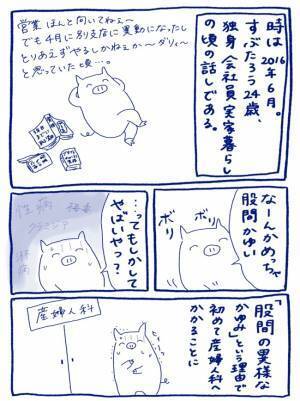 時は2016年6月。
すぶたろう24歳、
独身会社員実家暮らし
の頃の話しである。
営業ほんと向いてねぇ〜
でも4月に別支店に異動になったし
とりあえずやるしかねぇか〜ダリィ〜
と思っていた頃…。
なーんかめっちゃ
股間かゆい
ボリ
ボリ
…ってもしかして
やばいやつ?
性病
クラミジア
淋病
「股間の異様な
かゆみ」という理由で
初めて産婦人科へ
かかることに
産婦人科